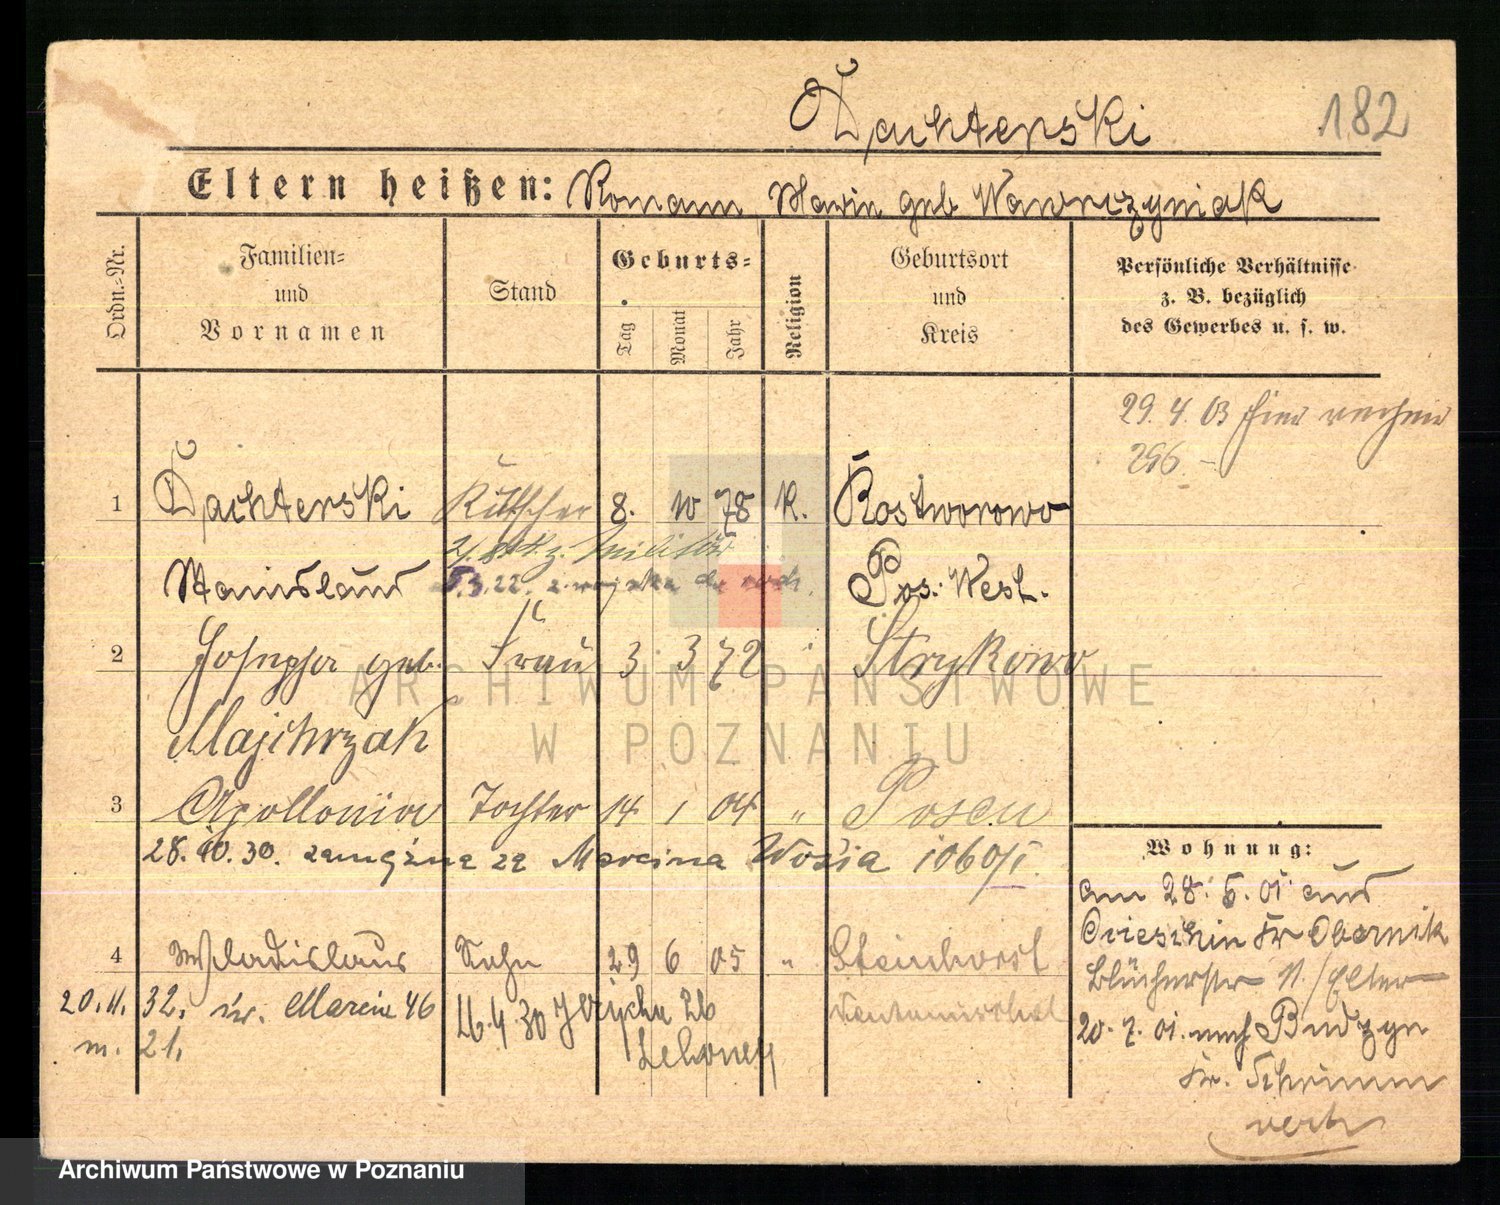 Dachterski 182
Eltern heißen: Romann Marie geb Wawrzyniak
Ordn.-Nr.
Familien- und Vornamen
Stand
Geburts-
Tag Monat Jahr
Religion
Geburtsort und Kreis
Persönliche Verhältnisse z. B. bezüglich des Gewerbes u. s. w.
29. 4. 03
296. -
1 Dachterski Kutscher 8. 10 78 K. Rostworowo
z. Militär
Stanislaus 5.3.22. z wojska Pos. West.
2 Josepha geb. Frau 3 3 72 " Strykowo
Majchrzak
3 Apollonia Tochter 14 1 04 " Posen
28. 10. 30. zamężna za Marcina Wozia 1060/I.
4 Wladislaus Sohn 29 6 05 " Steinhorst
20. 11. 32. ur. Marcin 46
m. 21.
26. 4. 30
Wohnung:
am 28. 5. 01 aus
Kr Obornik
Blücherstr 11/
20. 7. 01. nach Budzyn
Kr. Schrimm
verh
ARCHIWUM PAŃSTWOWE
W POZNANIU
Archiwum Państwowe w Poznaniu